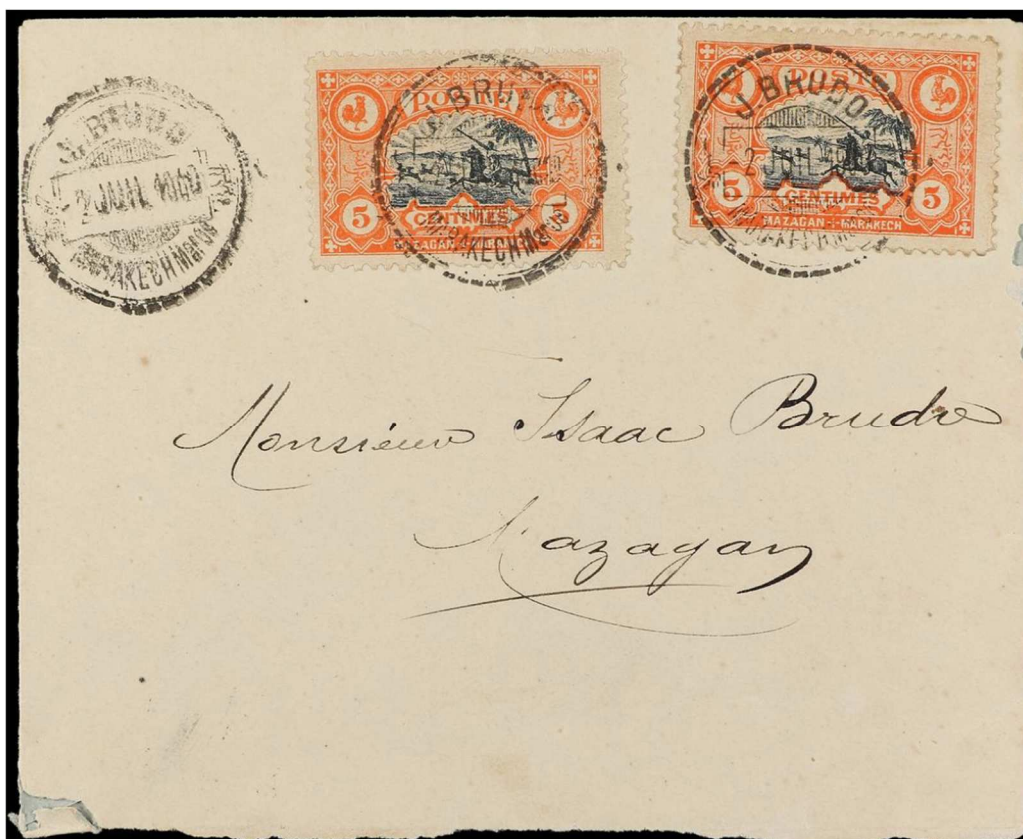 J. BRUDO
2 JUIL 00
MARAKECH Maroc
POSTE
5 5
CENTIMES
MAZAGAN
BRUDO
MARAKECH Maroc
5 5
CENTIMES
MAZAGAN-MARAKECH
J. BRUDO
2
Monsieur Isaac Brudo
Mazagan